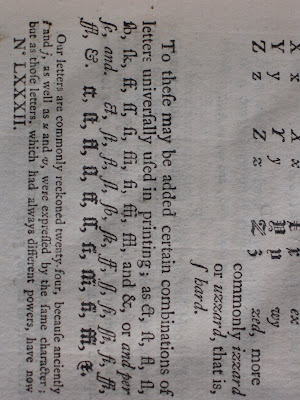 X x X x 𝔛 𝔵 ex
Y y Y y 𝔜 𝔶 wy
Z z Z z ℨ 𝔷 zed, more
commonly izzard
or uzzard, that is,
ſ hard.
To theſe may be added certain combinations of
letters univerſally uſed in printing; as ct, ſt, fl, ſl,
ſb, ſk, ff, ſſ, ſi, ſſi, fi, ffi, ffl, and &, or and per
ſe, and. ct, ſt, fl, ſl, ſb, ſk, ff, ſſ, ſi, ſſi, fi, ffi,
ffl, &.
Our letters are commonly reckoned twenty-four, becauſe anciently
i and j, as well as u and v, were expreſſed by the ſame character;
but as thoſe letters, which had always different powers, have now
N° LXXXII.